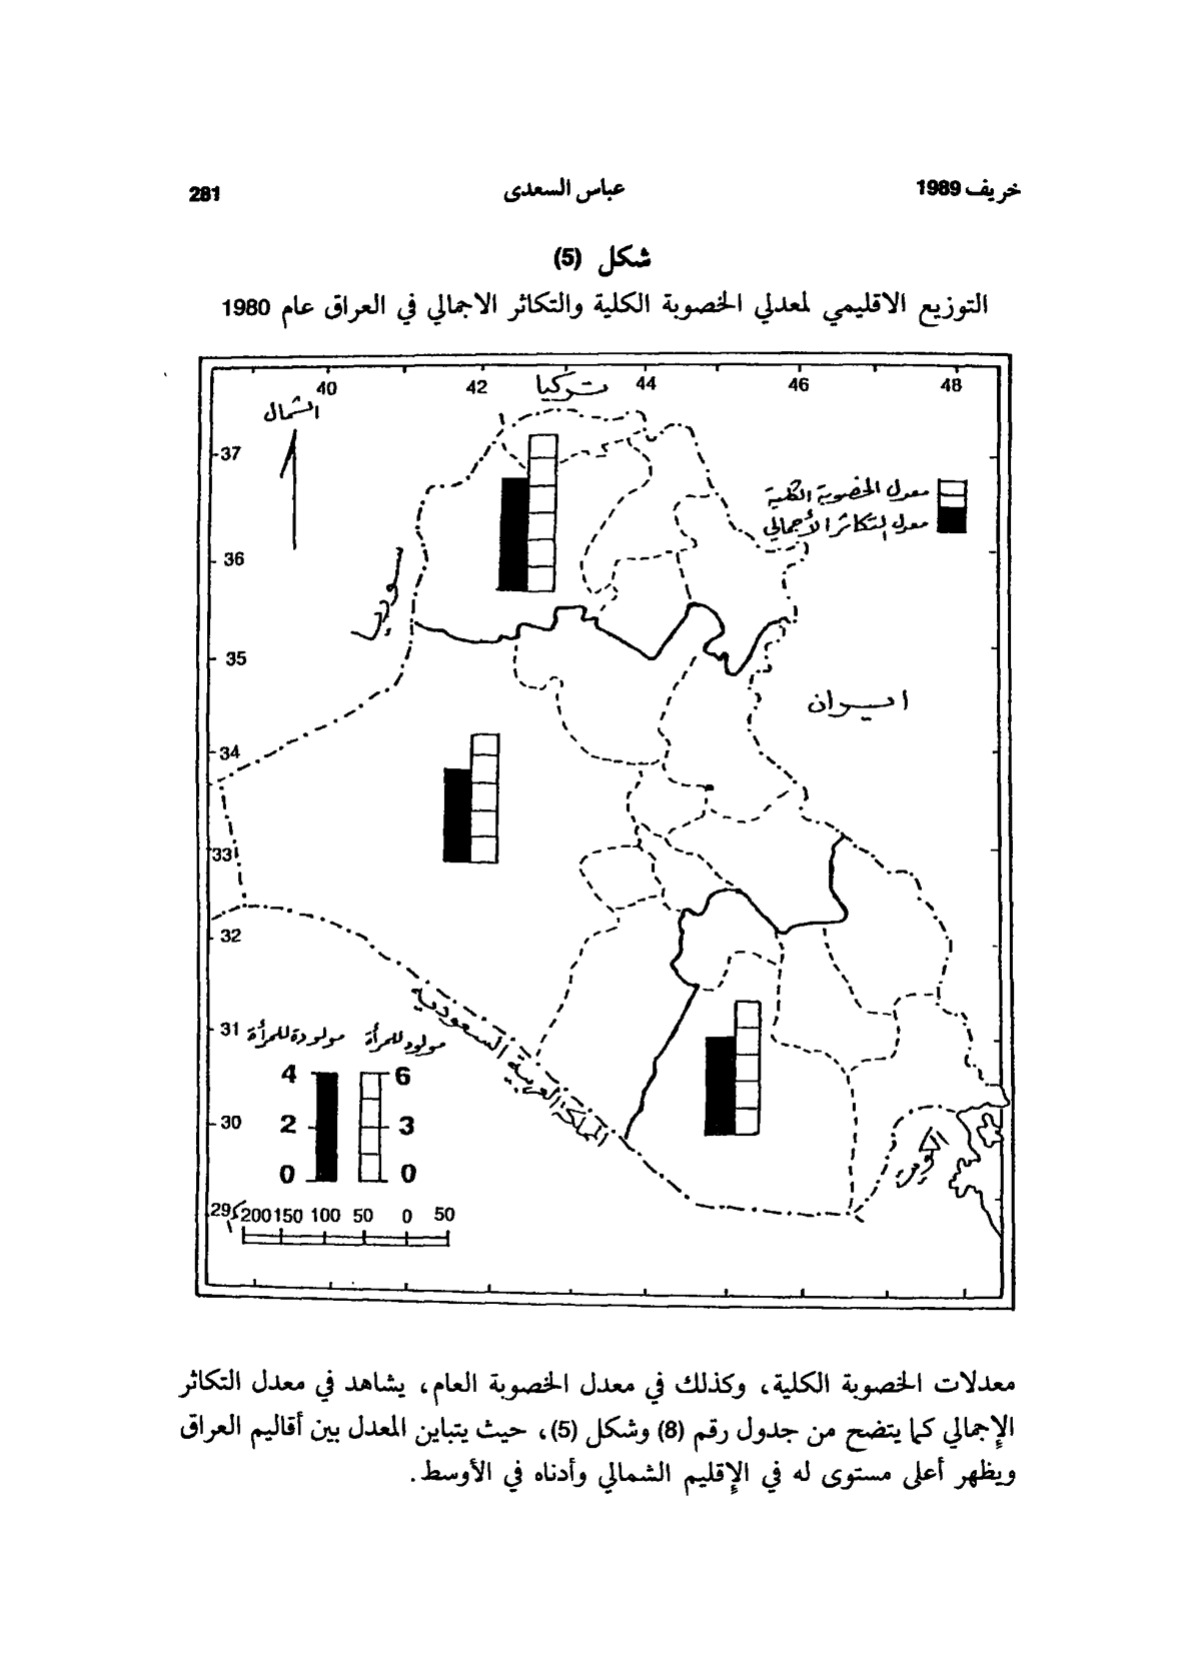 خريف 1989
عباس السعدى
281
شكل (5)
التوزيع الاقليمي لمعدلي الخصوبة الكلية والتكاثر الاجمالي في العراق عام 1980
40 42 44 46 48
تركيا
الشمال
37
معدل الخصوبة الكلية
معدل التكاثر الأجمالي
36
سوريا
35
ايران
34
33
32
المملكة العربية السعودية
31
مولود للمرأة
مولودة للمرأة
4
6
2
3
0
0
30
29
200 150 100 50 0 50
معدلات الخصوبة الكلية، وكذلك في معدل الخصوبة العام، يشاهد في معدل التكاثر
الإجمالي كما يتضح من جدول رقم (8) وشكل (5)، حيث يتباين المعدل بين أقاليم العراق
ويظهر أعلى مستوى له في الإقليم الشمالي وأدناه في الأوسط.